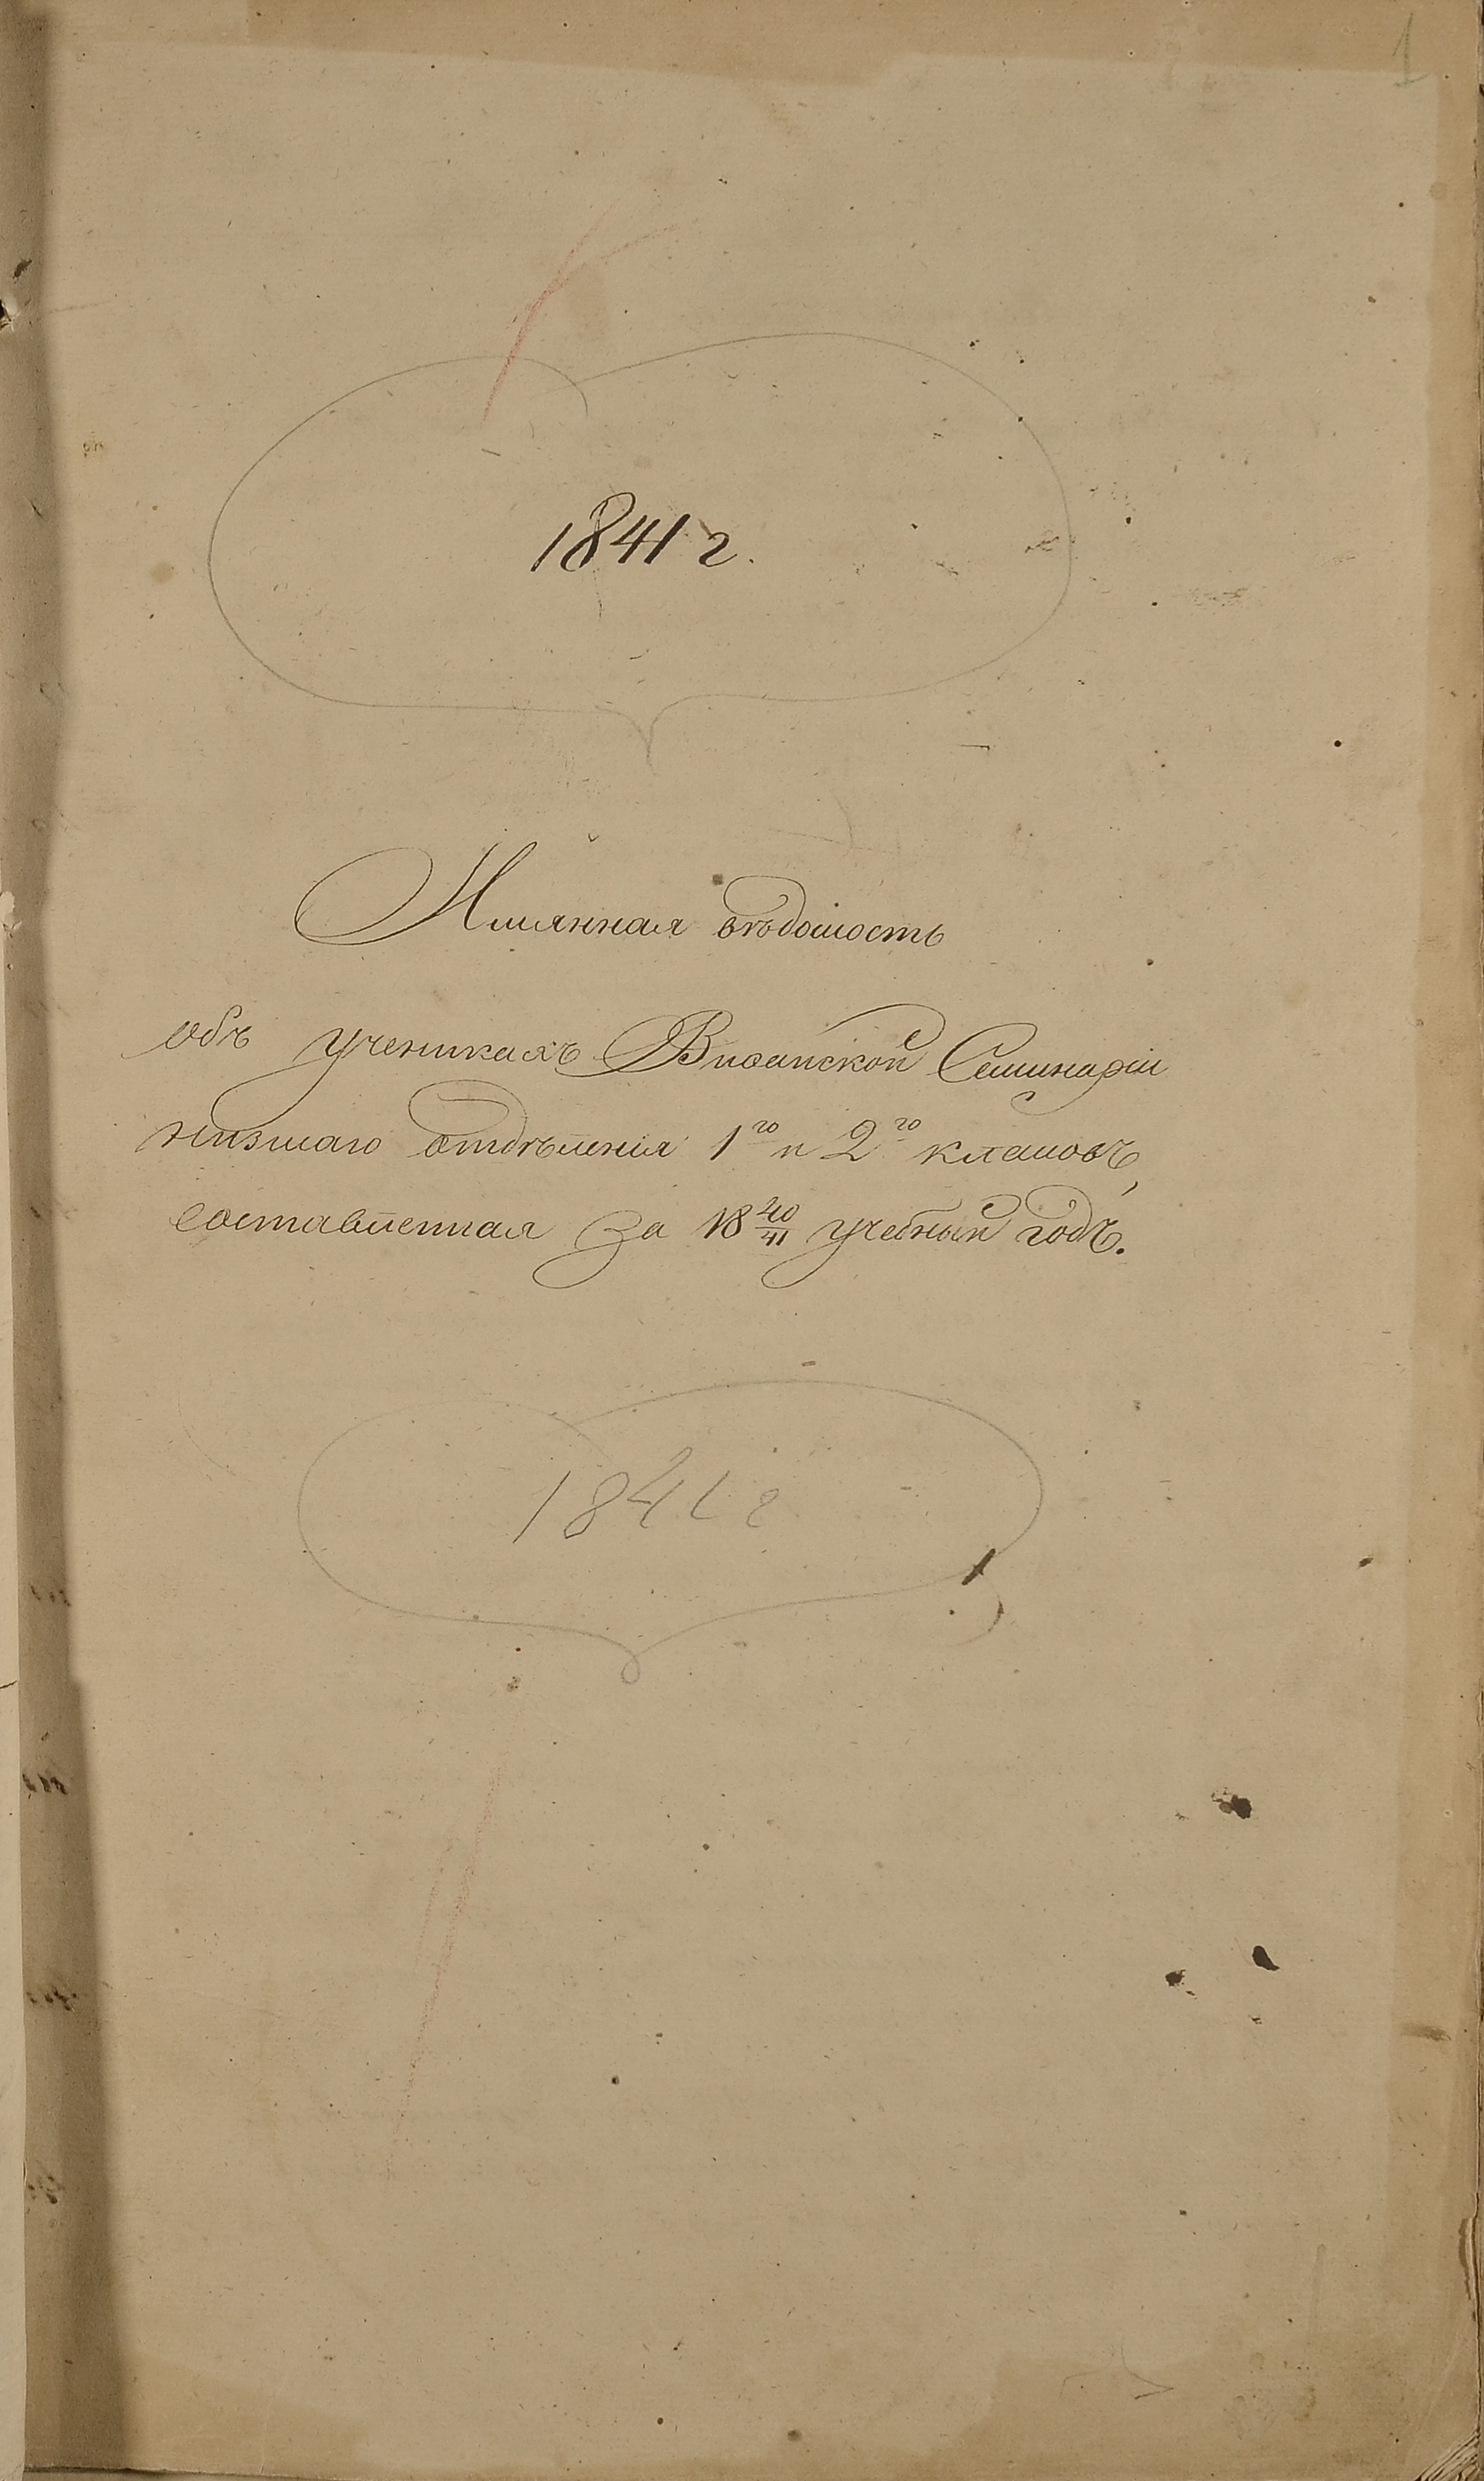 1
1841 г.
Имянная вѣдомость
объ ученикахъ Виѳанской Семинаріи
низшаго отдѣленія 1го и 2го классовъ,
составленная за 18 40/41 учебный годъ.
1841 г